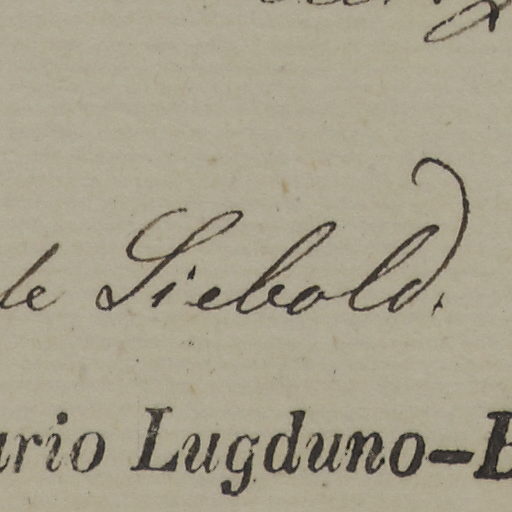 de Siebold.
ario Lugduno-B